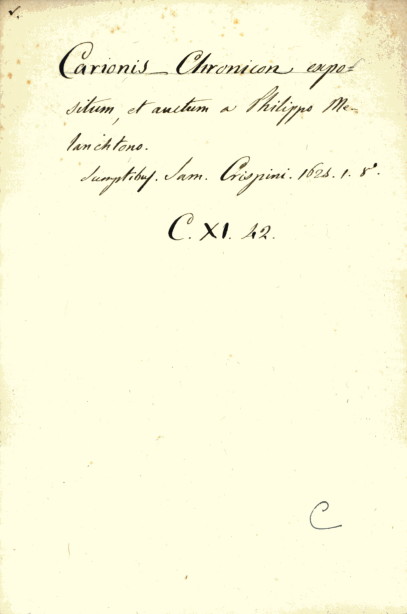 Carionis Chronicon expo-
situm, et auctum a Philippo Me-
lanchtono.
Sumptibus. Sam. Crispini. 1625. 1. 8°.
C. XI. 42.
C